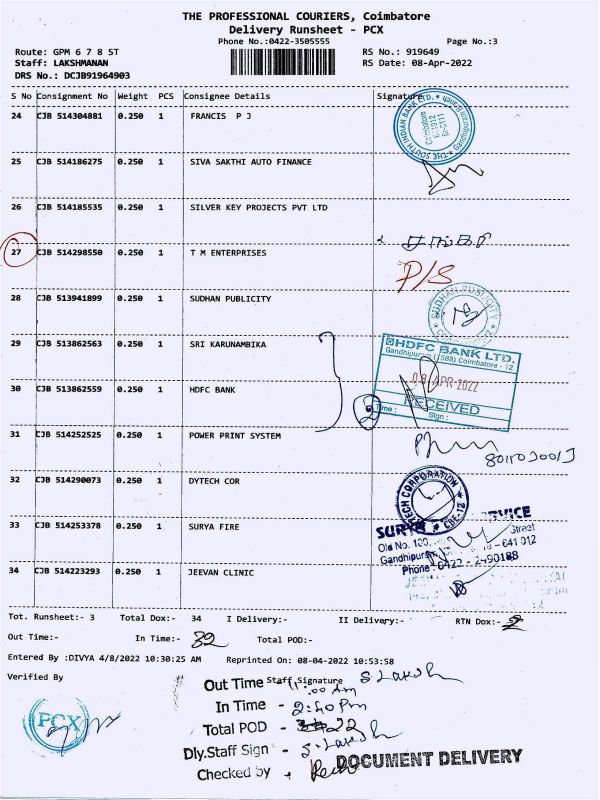 THE PROFESSIONAL COURIERS, Coimbatore
Delivery Runsheet - PCX
Phone No.:0422-3505555 Page No.:3
Route: GPM 6 7 8 ST RS No.: 919649
Staff: LAKSHMANAN RS Date: 08-Apr-2022
DRS No.: DCJB91964903
S No Consignment No Weight PCS Consignee Details Signature
24 CJB 514304881 0.250 1 FRANCIS P J
THE SOUTH INDIAN BANK LTD. Coimbatore
25 CJB 514186275 0.250 1 SIVA SAKTHI AUTO FINANCE
26 CJB 514185535 0.250 1 SILVER KEY PROJECTS PVT LTD
27 CJB 514298550 0.250 1 T M ENTERPRISES
P/S
28 CJB 513941899 0.250 1 SUDHAN PUBLICITY
SUDHAN PUBLICITY
29 CJB 513862563 0.250 1 SRI KARUNAMBIKA
HDFC BANK LTD.
Gandhipuram (588) Coimbatore - 12
08 APR 2022
RECEIVED
Time : Sign :
30 CJB 513862559 0.250 1 HDFC BANK
31 CJB 514252525 0.250 1 POWER PRINT SYSTEM
32 CJB 514290073 0.250 1 DYTECH COR
DYTECH CORPORATION CBE-12
33 CJB 514253378 0.250 1 SURYA FIRE
SURYA SERVICE
Old No. 100, Street
Gandhipuram, - 641 012
Phone : 0422 - 2490188
34 CJB 514223293 0.250 1 JEEVAN CLINIC
Tot. Runsheet:- 3 Total Dox:- 34 I Delivery:- II Delivery:- RTN Dox:- 2
Out Time:- In Time:- 32 Total POD:-
Entered By :DIVYA 4/8/2022 10:30:25 AM Reprinted On: 08-04-2022 10:53:58
Verified By Staff Signature
PCX
Out Time 11:00 Am
In Time - 2:40 Pm
Total POD - 22
Dly.Staff Sign - S. Laksh
Checked by
DOCUMENT DELIVERY